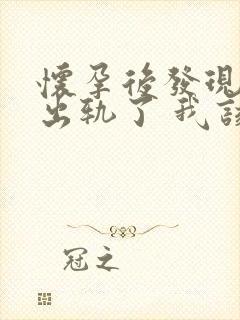 懷孕後發現
出轨了我該
冠之